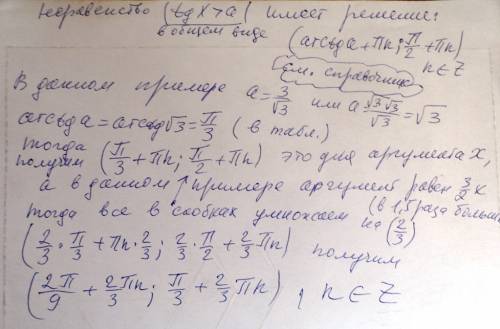 Неравенство (tg x > a) имеет решение:
в общем виде
(arctg a + πn; π/2 + πn)
n ∈ Z
см. справочник
В данном примере a = 3/√3 или a = √3·√3/√3 = √3
arctg a = arctg √3 = π/3 (в табл.)
тогда
получим (π/3 + πn; π/2 + πn) это для аргумента x,
а в данном примере аргумент равен 3/2 x
(в 1,5 раза больше)
тогда все в скобках умножаем на (2/3)
(2/3 · π/3 + πn · 2/3; 2/3 · π/2 + 2/3 πn) получим
(2π/9 + 2/3 πn; π/3 + 2/3 πn), n ∈ Z